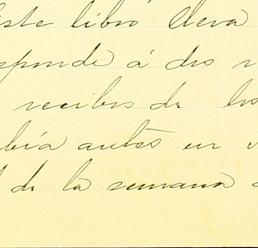 este libro lleva
sponde á dos
recibos de los
bía antes en
de la semana